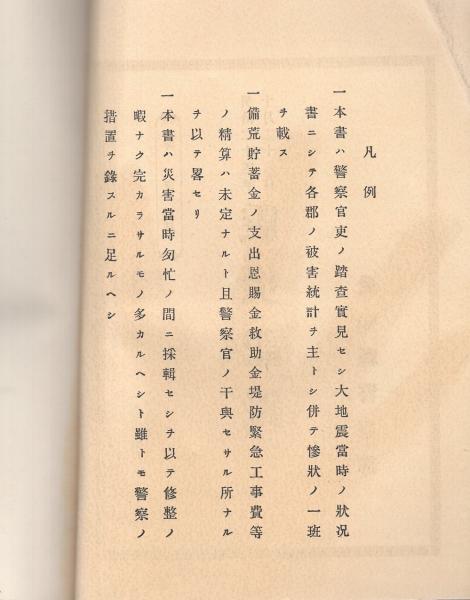 凡例
一本書ハ警察官吏ノ踏查實見セシ大地震當時ノ狀况
書ニシテ各郡ノ被害統計ヲ主トシ併テ慘狀ノ一班
ヲ載ス
一備荒貯蓄金ノ支出恩賜金救助金堤防緊急工事費等
ノ精算ハ未定ナルト且警察官ノ干與セサル所ナル
ヲ以テ畧セリ
一本書ハ災害當時匆忙ノ間ニ採輯セシヲ以テ修整ノ
暇ナク完カラサルモノ多カルヘシト雖トモ警察ノ
措置ヲ錄スルニ足ルヘシ